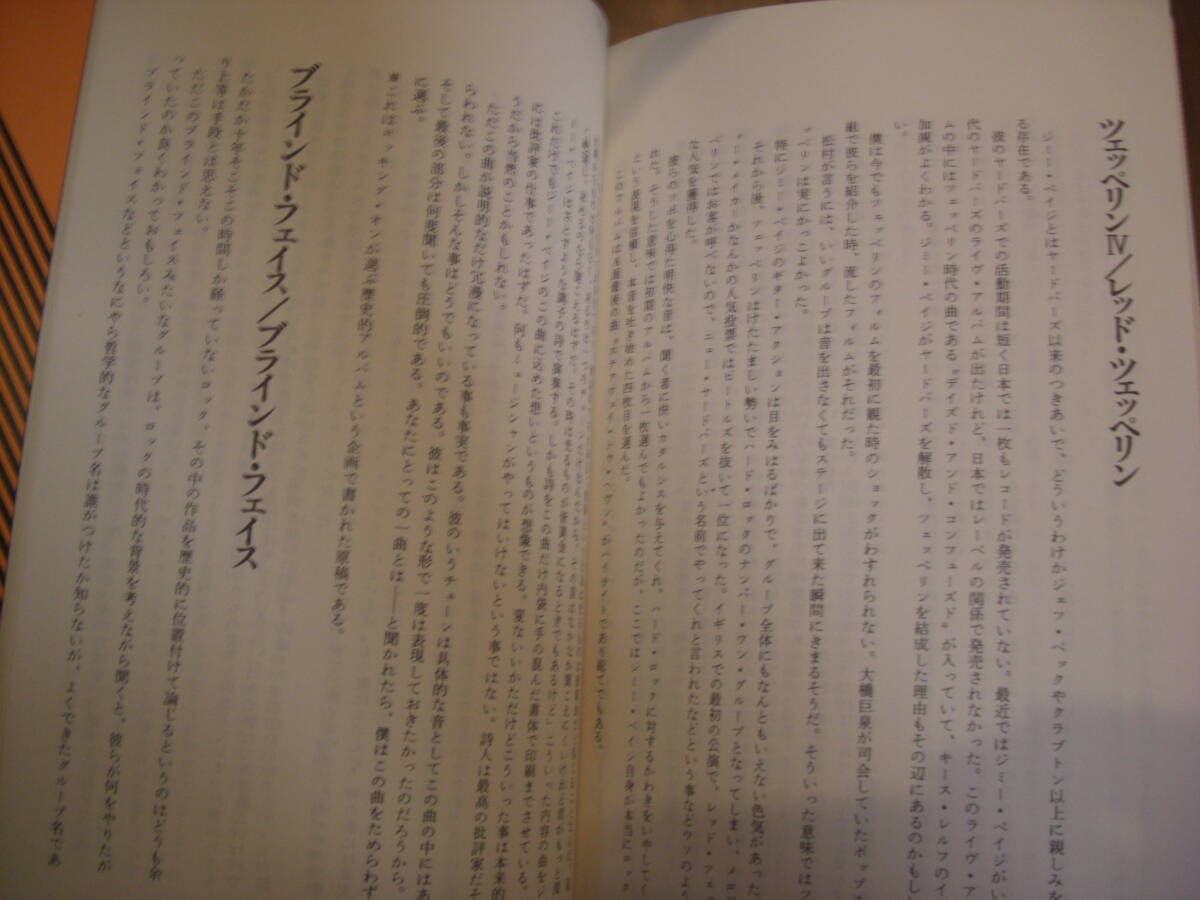 ツェッペリンⅣ／レッド・ツェッペリン
ジミー・ペイジとはヤードバーズ以来のつきあいで、どういうわけかジェフ・ベックやクラプトン以上に親しみを
る存在である。
彼のヤードバーズでの活動期間は短く日本では一枚もレコードが発売されていない。最近ではジミー・ペイジがい
代のヤードバーズのライヴ・アルバムが出たけれど、日本ではレーベルの関係で発売されなかった。このライヴ・ア
ムの中にはツェッペリン時代の曲である〝デイズド・アンド・コンフューズド〟が入っていて、キース・レルフのイ
加減がよくわかる。ジミー・ペイジがヤードバーズを解散し、ツェッペリンを結成した理由もその辺にあるのかもし
い。
僕は今でもツェッペリンのフィルムを最初に観た時のショックがわすれられない。大橋巨泉が司会していたポップ
組で彼らを紹介した時、流したフィルムがそれだった。
松村が言うには、いいグループは音を出さなくてもステージに出て来た瞬間にきまるそうだ。そういった意味ではツ
ッペリンは実にかっこよかった。
特にジミー・ペイジのギター・アクションは目をみはるばかりで、グループ全体にもなんともいえない色気があった
それから後、ツェッペリンはけたたましい勢いでハード・ロックのナンバー・ワン・グループとなってしまい、メロ
ー・メイカーかなんかの人気投票ではビートルズを抜いて一位になった。イギリスでの最初の公演で、レッド・ツェ
ペリンではお客が呼べないので、ニュー・ヤードバーズという名前でやってくれと言われたなどという事などウソのよう
な人気を獲得した。
彼らのツボを心得た明快な音は、聞く者に快いカタルシスを与えてくれ、ハード・ロックに対するかわきをいやしてく
れた。そうした意味では初期のアルバムから一枚選んでもよかったのだが、ここではジミー・ペイジ自身が本当にロック
という表現を信頼し、本音を吐き始めた四枚目を選んだ。
このアルバムはＡ面最後の曲〝ステアウェイ・トゥ・ヘヴン〟がハイライトであり総てでもある。
これだけでもジミー・ペイジのこの曲に込めた想いというものが想像できる。変ないいかただけどこういった事は本来的
には批評家の仕事であったはずだ。何もミュージシャンがやってはいけないという事ではない。詩人は最高の批評家だそ
うだから当然のことかもしれない。
ただこの曲が説明的なだけ冗漫になっている事も事実である。彼のいうチューンは具体的な音としてこの曲の中にはあ
られない。しかしそんな事はどうでもいいのである。彼はこのような形で一度は表現しておきたかったのだろうから。
そして最後の部分は何度聞いても圧倒的である。あなたにとっての一曲とは――と聞かれたら、僕はこの曲をためらわず
に選ぶ。
＊これはロッキング・オンが選ぶ歴史的アルバムという企画で書かれた原稿である。
ブラインド・フェイス／ブラインド・フェイス
たかだか十年そこそこの時間しか経っていないロック、その中の作品を歴史的に位置付けて論じるというのはどうも余
り上等は手段とは思えない。
ただこのブラインド・フェイスみたいなグループは、ロックの時代的な背景を考えながら聞くと、彼らが何をやりたが
っていたのか良くわかっておもしろい。
ブラインド・フェイスなどというなにやら哲学的なグループ名は誰がつけたか知らないが、よくできたグループ名であ